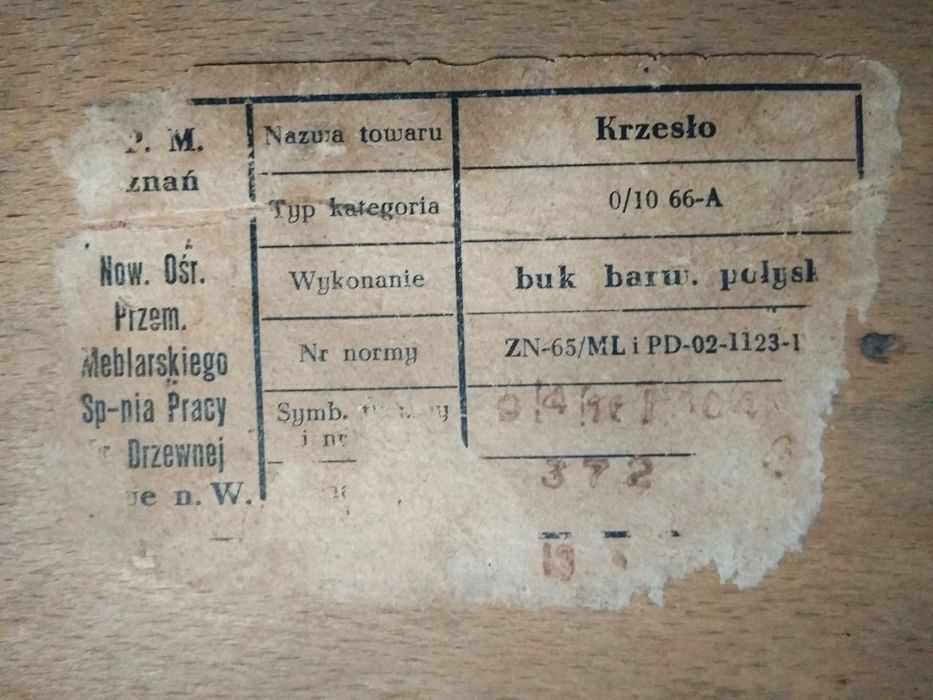 P. M.
znań
Now. Ośr.
Przem.
Meblarskiego
Sp-nia Pracy
Drzewnej
n. W.
Nazwa towaru
Krzesło
Typ kategoria
0/10 66-A
Wykonanie
buk barw. połysk
Nr normy
ZN-65/ML i PD-02-1123-1
Symb.
i nr
372